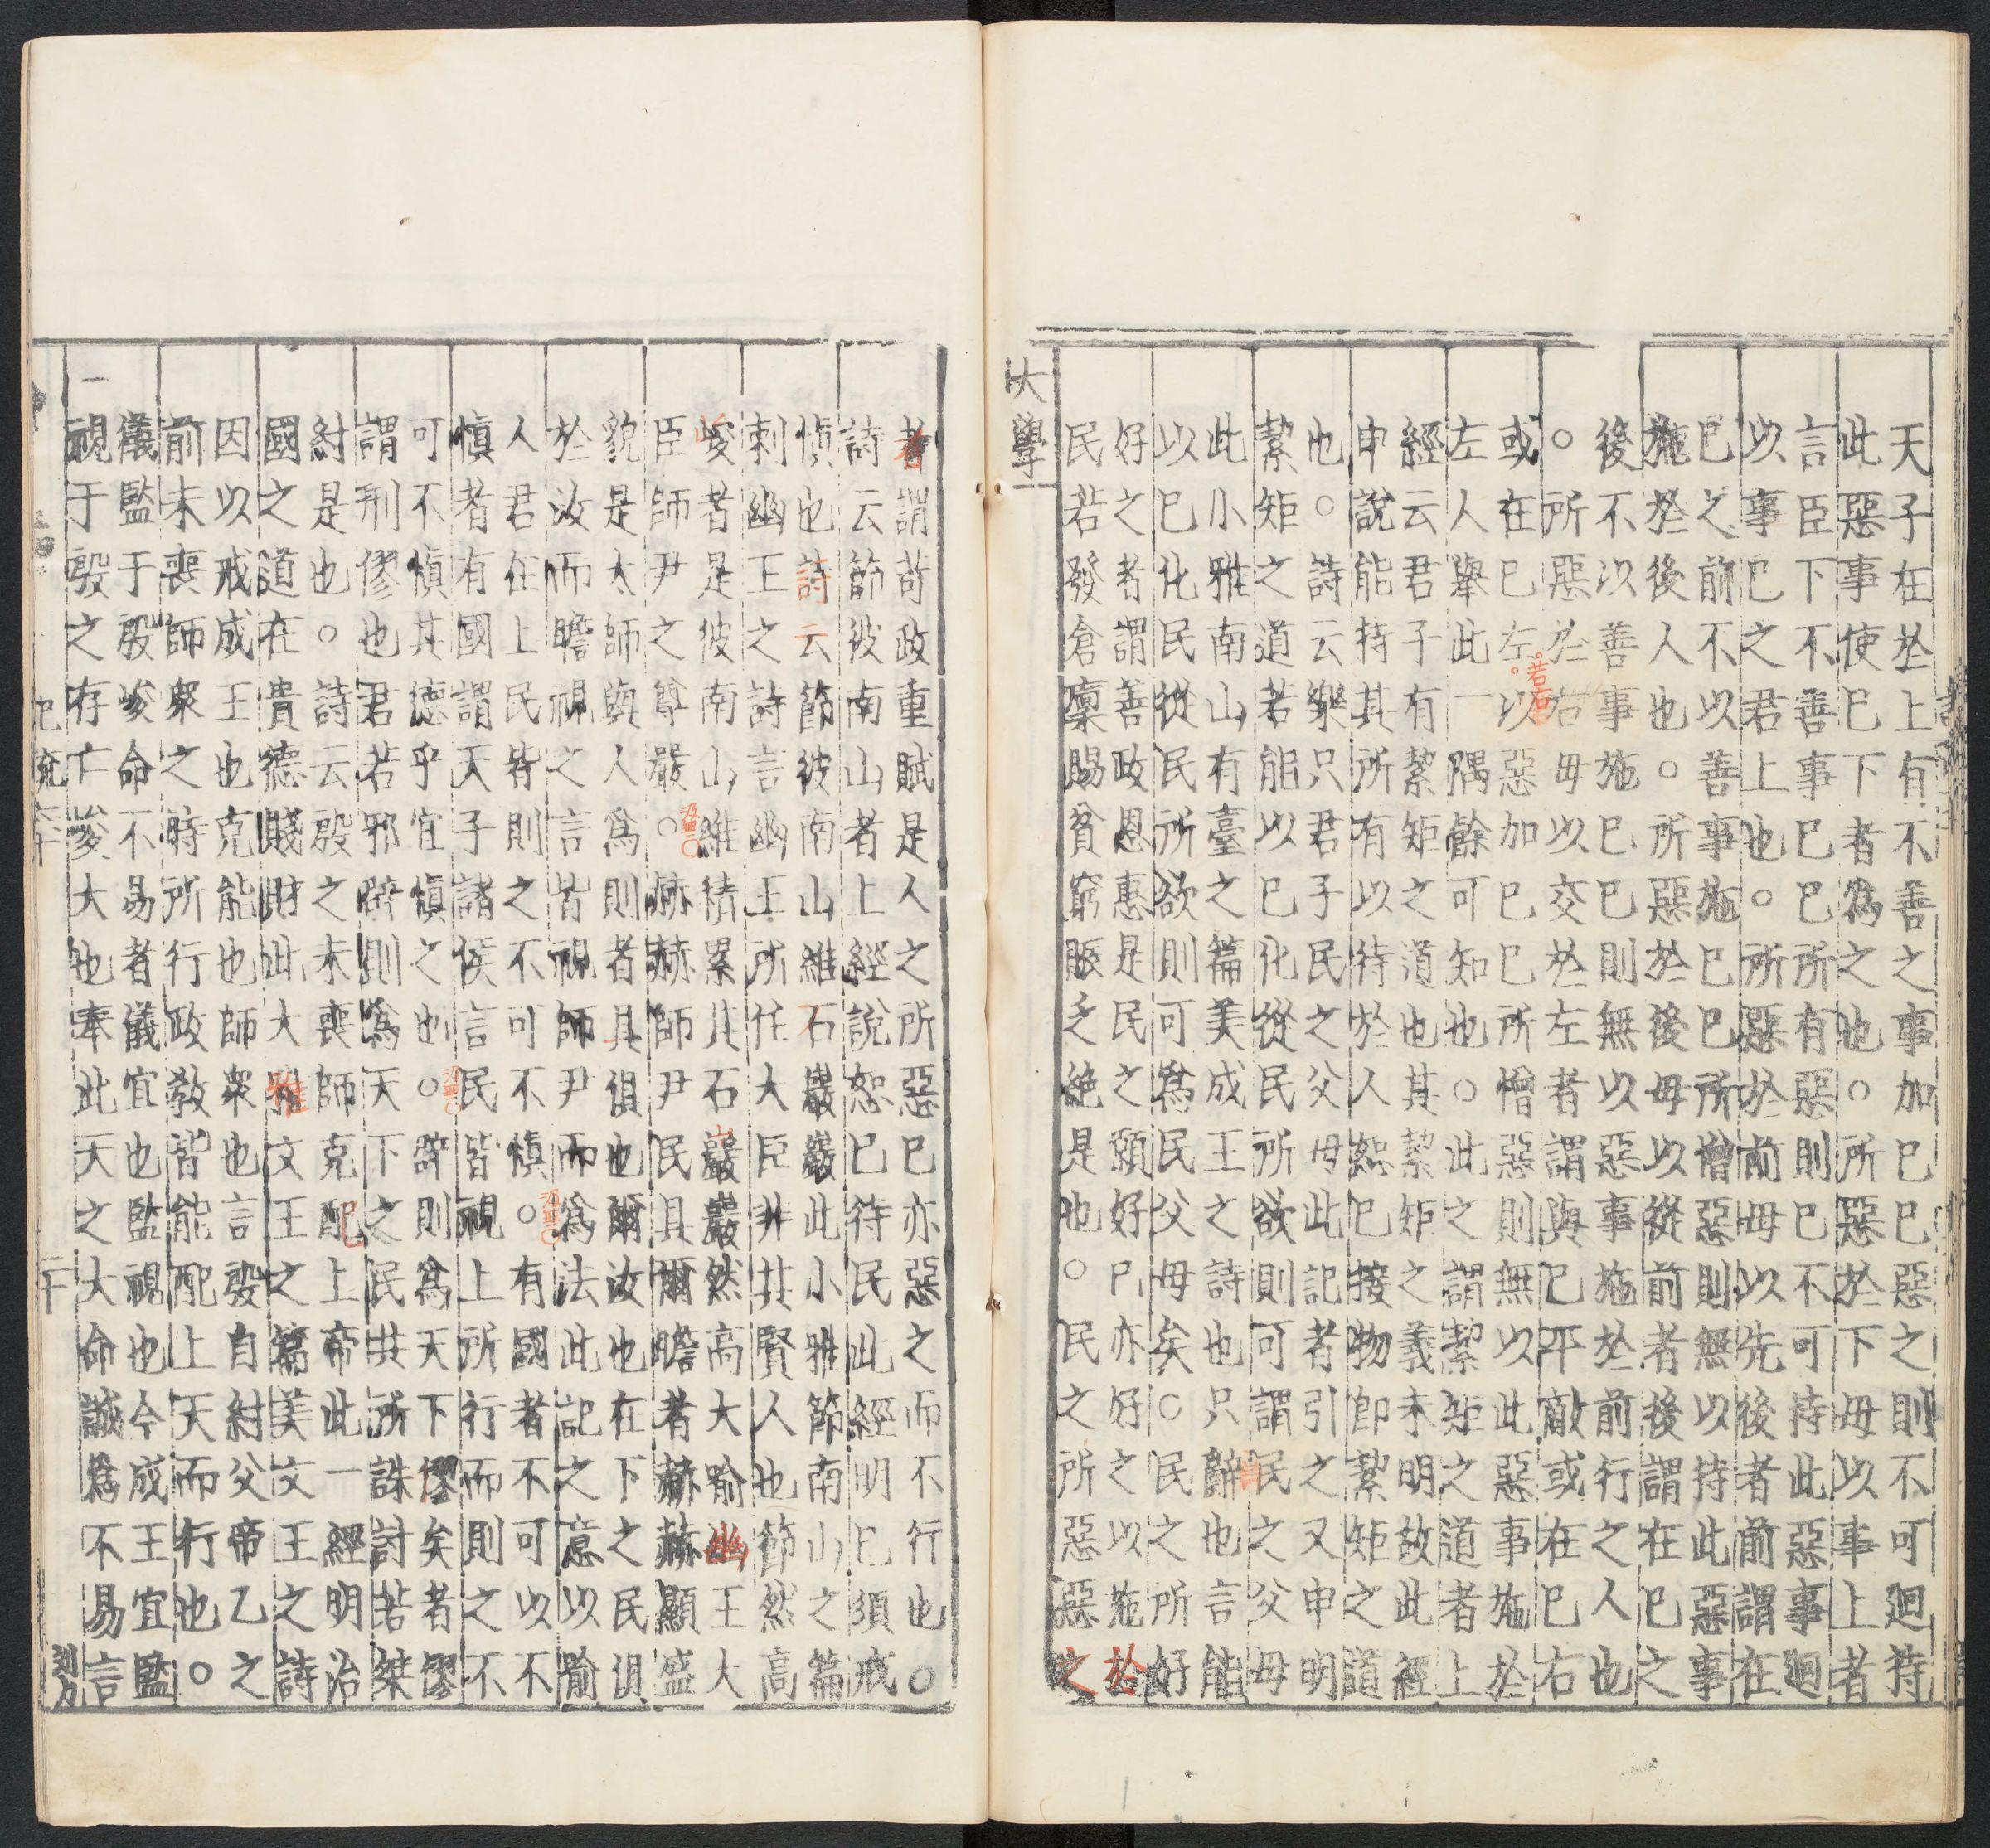 天子在於上有不善之事加巳巳惡之則不可廻持
此惡事使巳下者為之也○所惡於下毋以事上者
言臣下不善事巳巳所有惡則巳不可持此惡事廻
以事巳之君上也○所惡於前毋以先後者前謂在
巳之前不以善事施巳巳所憎惡則無以持此惡事
施於後人也○所惡於後毋以從前者後謂在巳之
後不以善事施巳巳則無以惡事施於前行之人也
○所惡於右毋以交於左者謂與巳平敵或在巳右
或在巳左以惡加巳巳所憎惡則無以此惡事施於
若右
左人舉此一隅餘可知也○此之謂絜矩之道者上
經云君子有絜矩之道也其絜矩之義未明故此經
申說能持其所有以待於人恕巳接物即絜矩之道
也○詩云樂只君子民之父母此記者引之又申明
絜矩之道若能以巳化從民所欲則可謂民之父母
此小雅南山有臺之篇美成王之詩也只辭也言能
以巳化民從民所欲則可為民父母矣○民之所好
好之者謂善政恩惠是民之願好巳亦好之以施於
民若發倉廩賜貧窮賑乏絶是也○民之所惡惡之
大學
者謂苛政重賦是人之所惡巳亦惡之而不行也○
詩云節彼南山者上經說恕巳待民此經明巳須戒
慎也詩云節彼南山維石巖巖此小雅節南山之篇
刺幽王之詩言幽王所任大臣非其賢人也節然高
峻者是彼南山維積累其石巖巖然高大喻幽王大
臣師尹之尊嚴○赫赫師尹民具爾瞻者赫赫顯盛
貌是太師與人為則者具俱也爾汝也在下之民俱
於汝而瞻視之言皆視師尹而為法此記之意以喻
人君在上民皆則之不可不慎○有國者不可以不
慎者有國謂天子諸侯言民皆視上所行而則之不
可不慎其德乎宜慎之也○辟則為天下僇矣者僇
謂刑僇也君若邪辟則為天下之民共所誅討若桀
紂是也○詩云殷之未喪師克配上帝此一經明治
國之道在貴德賤財此大雅文王之篇美文王之詩
因以戒成王也克能也師衆也言殷自紂父帝乙之
前未喪師衆之時所行政敎皆能配上天而行也○
儀監于殷峻命不易者儀宜也監視也今成王宜監
視于殷之存亡峻大也奉此天之大命誠為不易言